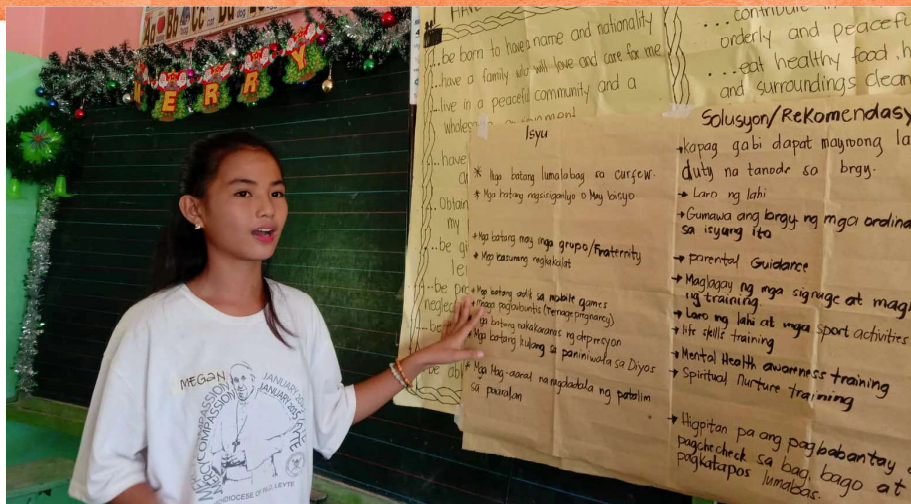 Aa Bb Cc Dd
MERRY
HAVE
...be born to have a name and nationality
...have a family who will love and care for me
...live in a peaceful community and a
wholesome environment
...have
Obtain
my
...be
neglect
be
be
orderly and peaceful
...eat healthy food, h
and surroundings clean
Isyu
* Mga batang lumalabag sa curfew.
* Mga batang nagsisigarilyo o May bisyo
* Mga batang may mga grupo/Fraternity
* Mga basurang nagkakalat
* Mga batang adik sa mobile games
* Maaga pagbubuntis (Teenage pregnancy)
Mga batang nakakaranas ng depresyon
Mga batang kulang sa paniniwala sa Diyos
* Mga Mag-aaral na nagdadala ng patalim
sa paaralan
Solusyon/Rekomendasy
→ kapag gabi dapat mayroong la
duty na tanods sa brgy.
→ Laro ng lahi
→ Gumawa ang brgy ng mga ordina
sa isyung ito
→ parental Guidance
→ Maglagay ng mga signage at mag
ng training.
→ Laro ng lahi at mga sport activities
→ life skills training
→ Mental Health awareness training
→ Spiritual Nurture training
→ Higpitan pa ang pagbabantay
pagchecheck sa bag bago at
pagkatapos lumabas.
MEGAN
MERCY COMPASSION
JANUARY
JANUARY 2015 LEYTE